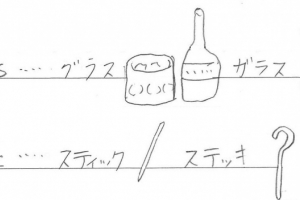 …… グラス ガラス
…… スティック ステッキ